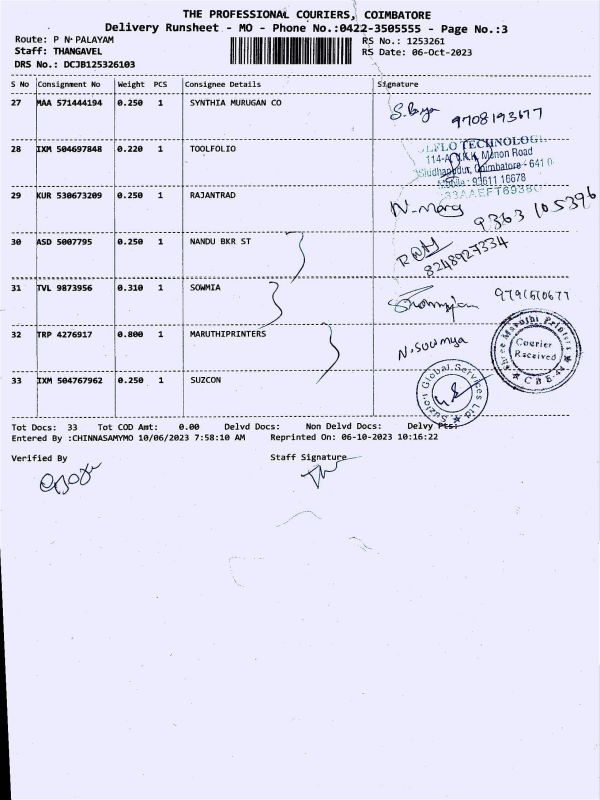 THE PROFESSIONAL COURIERS, COIMBATORE
Delivery Runsheet - MO - Phone No.:0422-3505555 - Page No.:3
Route: P N PALAYAM RS No.: 1253261
Staff: THANGAVEL RS Date: 06-Oct-2023
DRS No.: DCJB125326103
S No Consignment No Weight PCS Consignee Details Signature
27 MAA 571444194 0.250 1 SYNTHIA MURUGAN CO
28 IXM 504697848 0.220 1 TOOLFOLIO
TECHNOLOG
Menon Road
Coimbatore - 641 0
Mobile : 93611 16678
29 KUR 530673209 0.250 1 RAJANTRAD
9363 105396
30 ASD 5007795 0.250 1 NANDU BKR ST
8248927334
31 TVL 9873956 0.310 1 SOWMIA
32 TRP 4276917 0.800 1 MARUTHIPRINTERS N.Sowmya
Shree Maruthi Printers
Courier
Received
33 IXM 504767962 0.250 1 SUZCON
Global Services
Tot Docs: 33 Tot COD Amt: 0.00 Delvd Docs: Non Delvd Docs: Delvy Pts:
Entered By :CHINNASAMYMO 10/06/2023 7:58:10 AM Reprinted On: 06-10-2023 10:16:22
Verified By Staff Signature